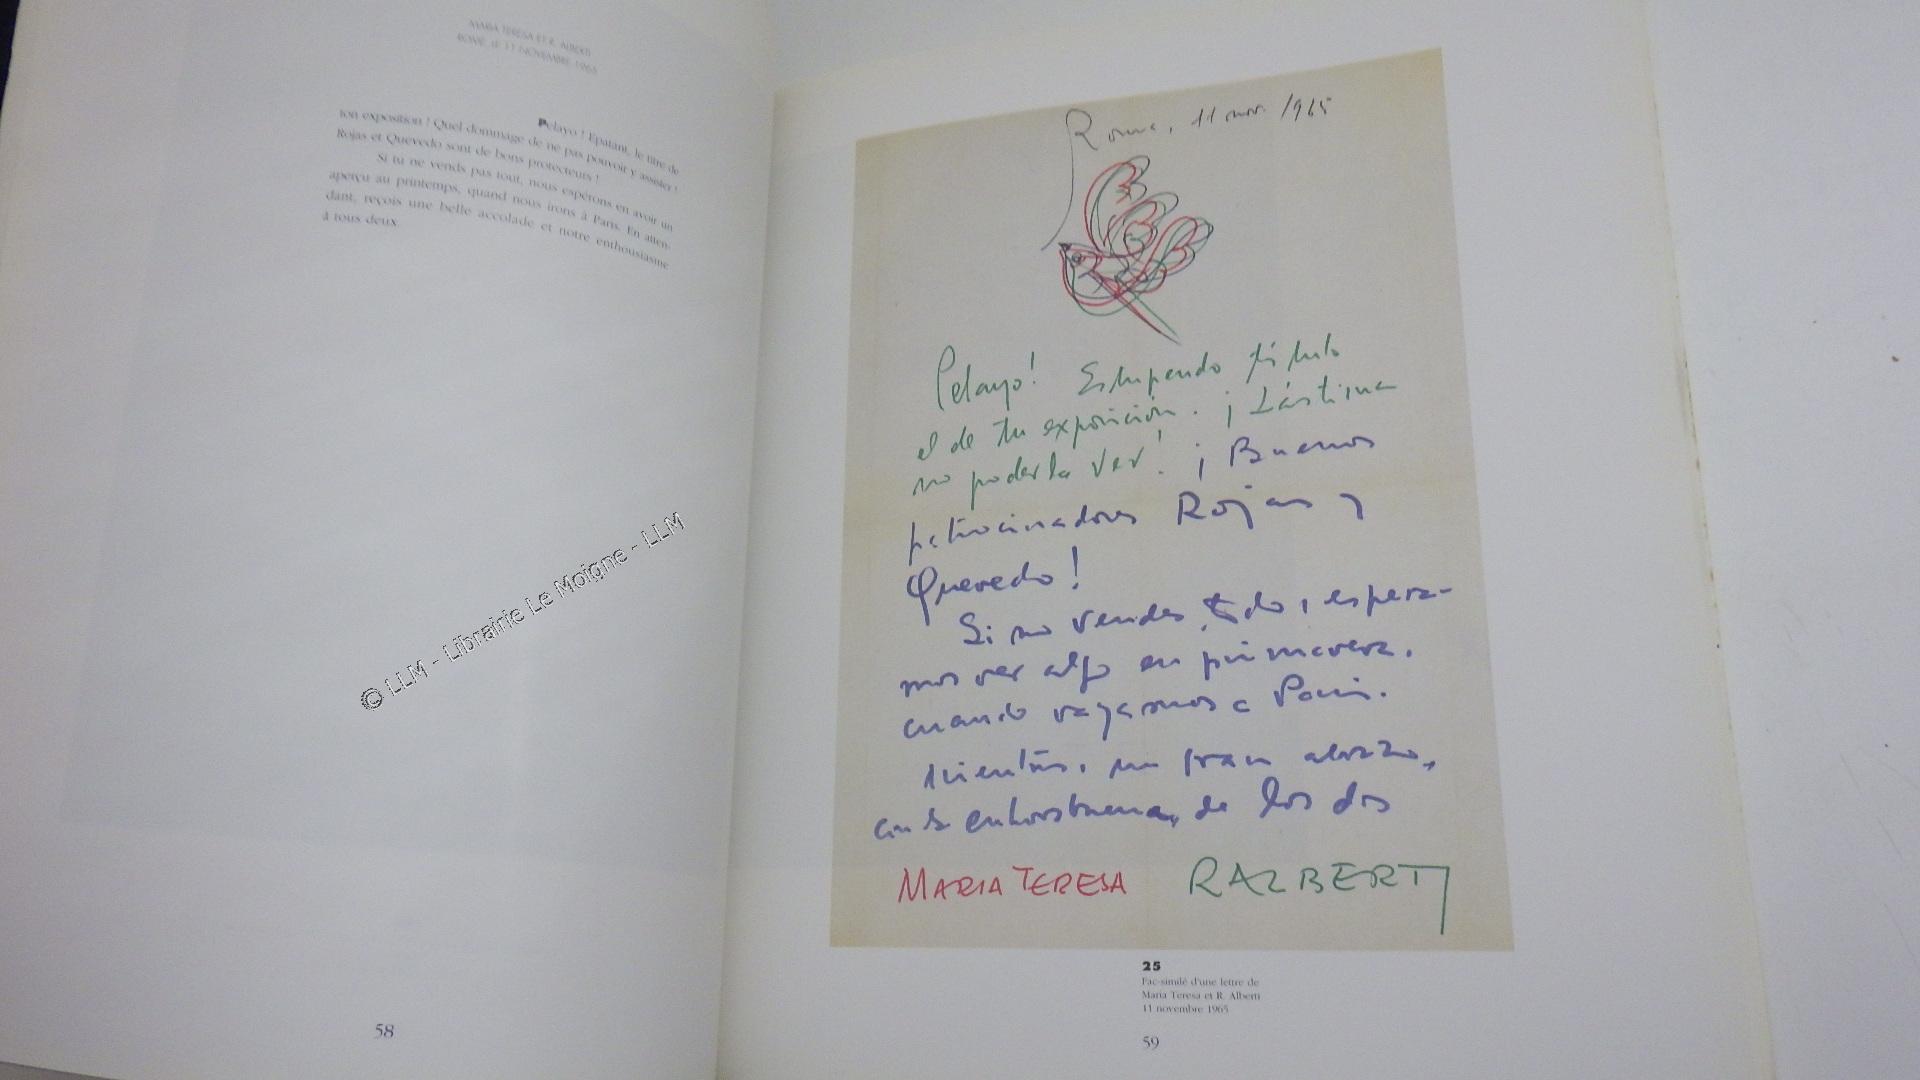 MARIA TERESA ET R. ALBERTI
ROME, LE 11 NOVEMBRE 1965
Pelayo ! Epatant, le titre de
ton exposition ! Quel dommage de ne pas pouvoir y assister !
Rojas et Quevedo sont de bons protecteurs !
Si tu ne vends pas tout, nous espérons en avoir un
aperçu au printemps, quand nous irons à Paris. En atten-
dant, reçois une belle accolade et notre enthousiasme
à tous deux.
© LLM - Librairie Le Moigne - LLM
58
Roma, 11 nov. 1965
Pelayo! Estupendo título
el de tu exposición. ¡Lástima
no poderla ver! ¡Buenos
patrocinadores Rojas y
Quevedo!
Si no vendes todo, espera-
mos ver algo en primavera,
cuando vayamos a París.
Mientras, un gran abrazo,
con la enhorabuena, de los dos
MARIA TERESA RALBERTI
25
Fac-similé d'une lettre de
Maria Teresa et R. Alberti
11 novembre 1965
59